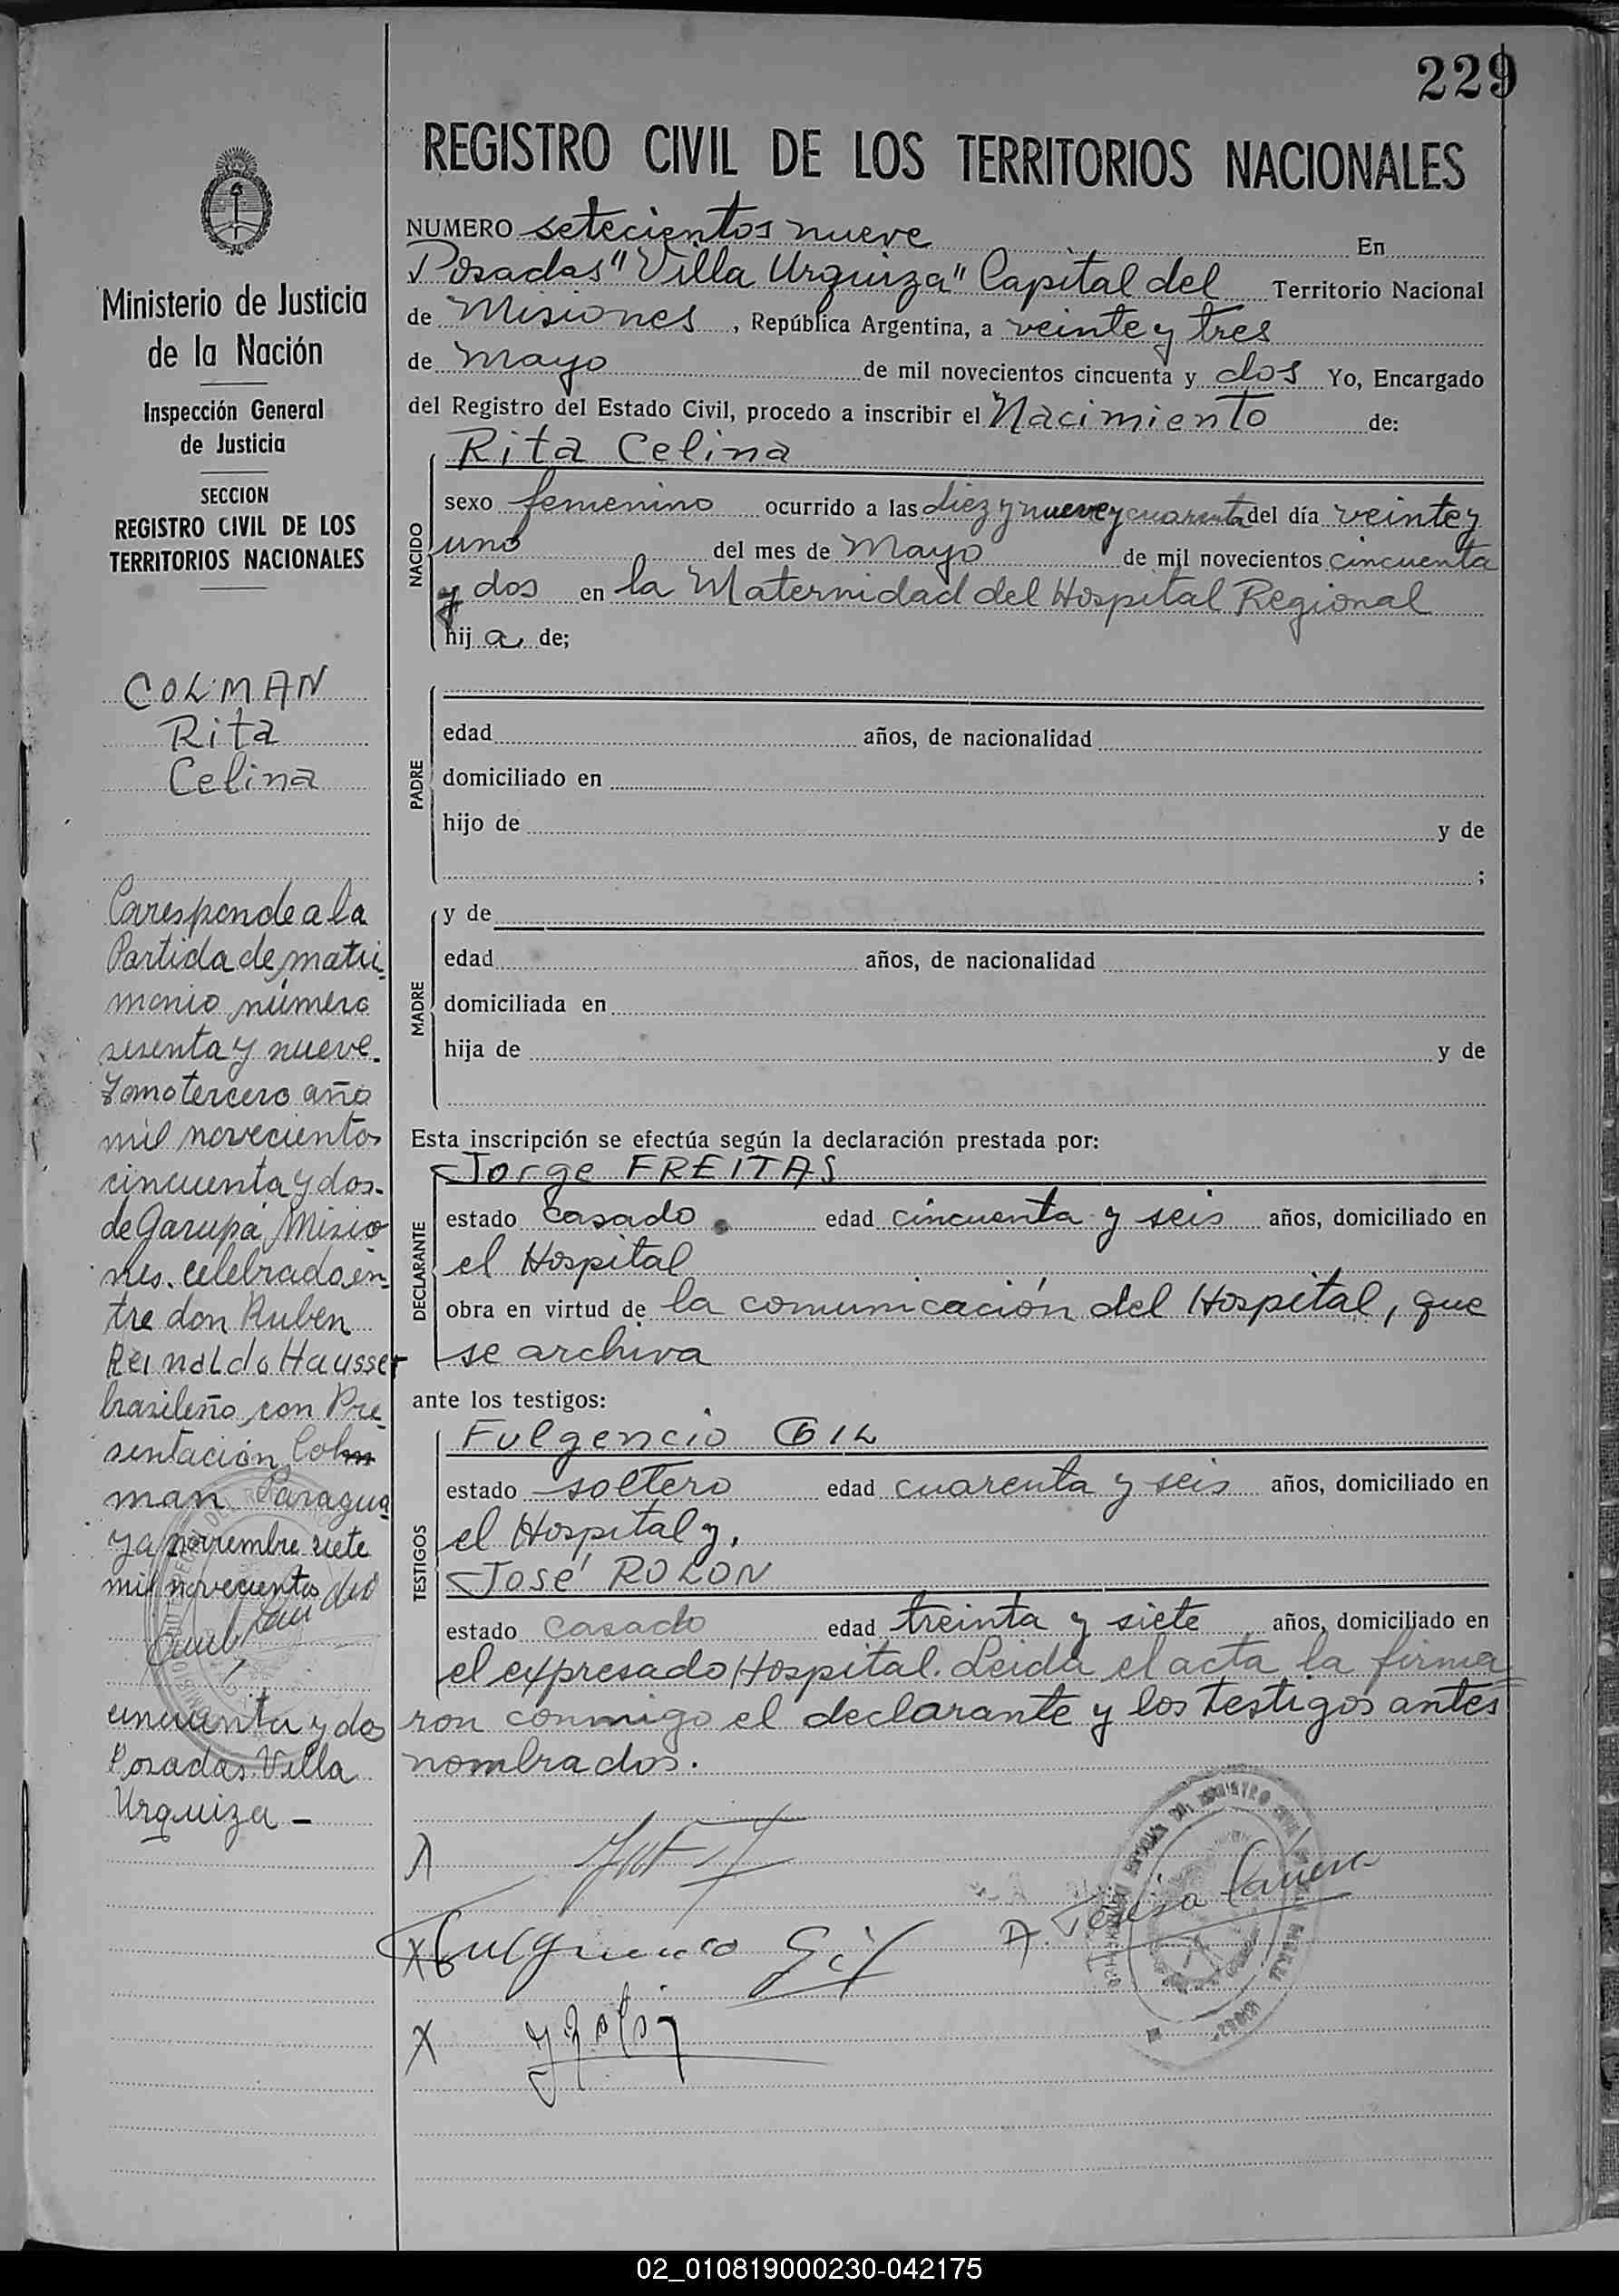 229
REGISTRO CIVIL DE LOS TERRITORIOS NACIONALES
Ministerio de Justicia
de la Nación
Inspección General
de Justicia
SECCION
REGISTRO CIVIL DE LOS
TERRITORIOS NACIONALES
COLMAN
Rita
Celina
Corresponde a la
Partida de matri-
monio número
sesenta y nueve.
Tomo tercero año
mil novecientos
cincuenta y dos.
de Garupá, Misio
nes. celebrado en-
tre don Ruben
Reinaldo Hausser
brasileño con Pre-
sentación Colm
man Paragua-
ya noviembre siete
mil novecientos
cincuenta y dos
Posadas Villa
Urquiza –
NUMERO setecientos nueve En
Posadas "Villa Urquiza" Capital del Territorio Nacional
de Misiones, República Argentina, a veinte y tres
de Mayo de mil novecientos cincuenta y dos Yo, Encargado
del Registro del Estado Civil, procedo a inscribir el Nacimiento de:
NACIDO
Rita Celina
sexo femenino ocurrido a las diez y nueve y cuarenta del día veinte y
uno del mes de Mayo de mil novecientos cincuenta
y dos en la Maternidad del Hospital Regional
hij a de;
PADRE
edad años, de nacionalidad
domiciliado en
hijo de y de
;
MADRE
y de
edad años, de nacionalidad
domiciliada en
hija de y de
Esta inscripción se efectúa según la declaración prestada por:
DECLARANTE
Jorge FREITAS
estado casado edad cincuenta y seis años, domiciliado en
el Hospital
obra en virtud de la comunicación del Hospital, que
se archiva
ante los testigos:
TESTIGOS
Fulgencio GIL
estado soltero edad cuarenta y seis años, domiciliado en
el Hospital y,
José ROLON
estado casado edad treinta y siete años, domiciliado en
el expresado Hospital. Leida el acta la firma
ron conmigo el declarante y los testigos antes
nombrados.
X Fulgencio Gil
X
02_010819000230-042175